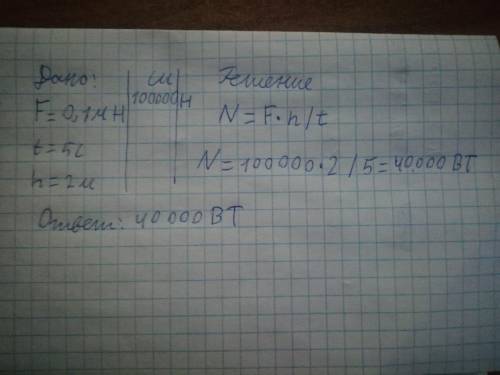 Дано:
СИ
Решение
F = 0,1 мН
100000 Н
N = F • h / t
t = 5с
N = 100000 • 2 / 5 = 40000 ВТ
h = 2м
Ответ: 40000 ВТ